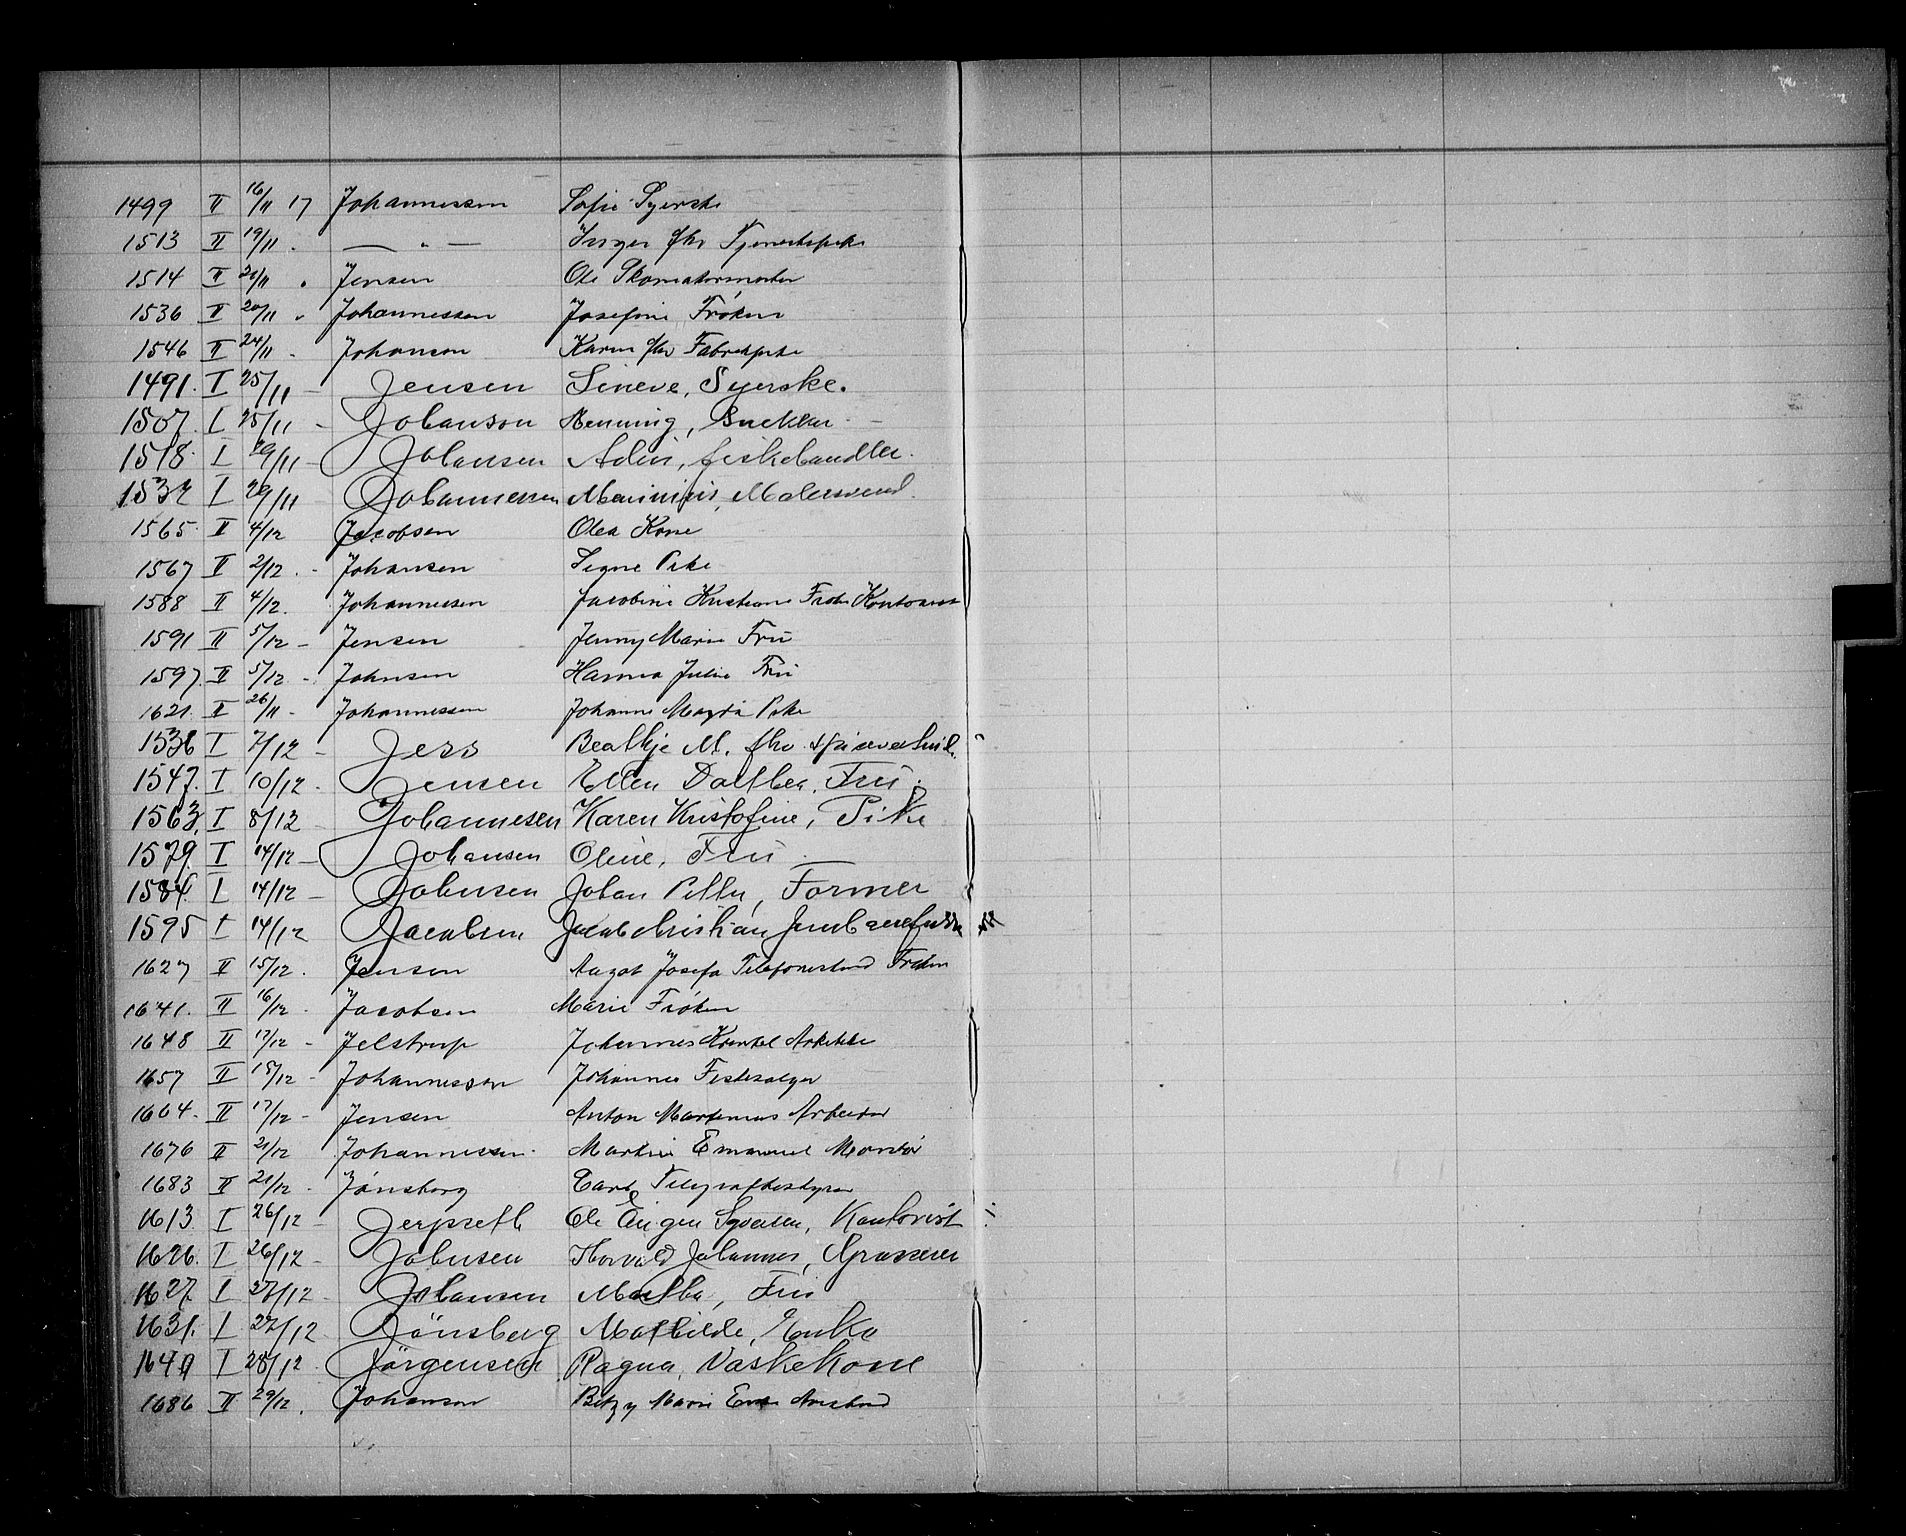 1499 II 16/11 17 Johannessen Sofie Syerske
1513 II 19/11 . — " — Inger fhv Tjenestepike
1514 II 21/11 . Jensen Ole Skomakermester
1536 II 20/11 " Johannessen Josefine Frøken
1546 II 24/11 - Johansen Karen fhv Fabrikpike
1491. I 25/11 - Jensen Sineve, Syerske.
1507. I 25/11 - Johanson Henning, Snekker -
1518. I 29/11 - Johansen fiskehandler.
1532 I 29/11 - Johannessen Marinius, Malersvend.
1565. II 4/12 Jacobsen Olea Kone
1567 II 2/12 . - Johansen Signe Pike
1588 II 4/12. Johannesen Jacobine Kristiane Frøken
1591 II 5/12 - Jensen Jenny Marie Fru
1597. II 5/12 - Johnsen Hanna Julie Fru
1621. II 26/11 - Johannessen Johanne Magda Pike
1536 I 7/12 - Jess M. fhv.
1547. I 10/12 - Jensen Ellen Dorthea, Fru.
1563. I 8/12 - Johannesen Karen Kristofine, Pike
1579. I 14/12 - Johansen Oline, Fru —
1584. I 14/12 - Johnsen Johan Petter, Former
1595 I 14/12 Jacobsen Jacob Christian
1627 II 15/12 . Jensen Aagot Josefa Telefonistinde Frøken
1641. II 16/12 . Jacobsen Marie Frøken
1648 II 17/12 - Jelstrup Johannes Arkitekt
1657 II 18/12 - Johannessen Johannes Fiskesælger
1664. II 17/12 - Jensen Anton Martinius Arbeider
1676 II 21/12 Johannessen. Martin Emanuel Montør
1683 II 21/12 . Jönsberg Carl Telegrafbestyrer
1613. I 26/12 - Jerpseth Ole Eugen Syversen, Kontorist
1626. I 26/12 - Johnsen Thorvald Johannes, Grosserer
1627. I 27/12 - Johansen Martha, Fru
1631. I 27/12 - Jönsberg Mathilde, Enke
1640 I 28/12 - Jörgensen Ragna, Vaskekone
1686 II 29/12 . Johansen Betzy Marie Enke